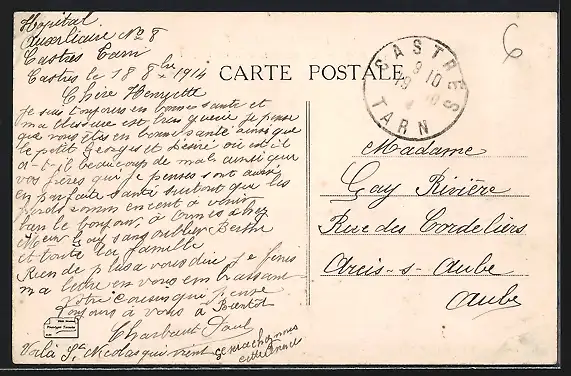 Hopital
Auxerliaire No 8
Castres Tarn
Castres le 18 8bre 1914
Chère Henriette
Je suis toujours en bonne santé et
ma blessure est bien guerie je pense
que vous êtes en bonne santé ainsi que
le petit Georges et Désiré où est il
a-t-il beaucoup de mal ainsi que
vos frères qui je penses sont aussi
en parfaite santé surtout que les
froids commencent à venir
bien le bonjour à
Mr Gay sans oublier Berthe
et toute la famille
Rien de plus a vous dire je finis
ma lettre en vous embrassant
Votre cousin qui pense
toujours à vous à Bientot
Charbaut Paul
Voilà St Nicolas qui vient chez nous
CARTE POSTALE
CASTRES
TARN
6
Madame
Gay Rivière
Rue des Cordeliers
Arcis-s-Aube
Aube